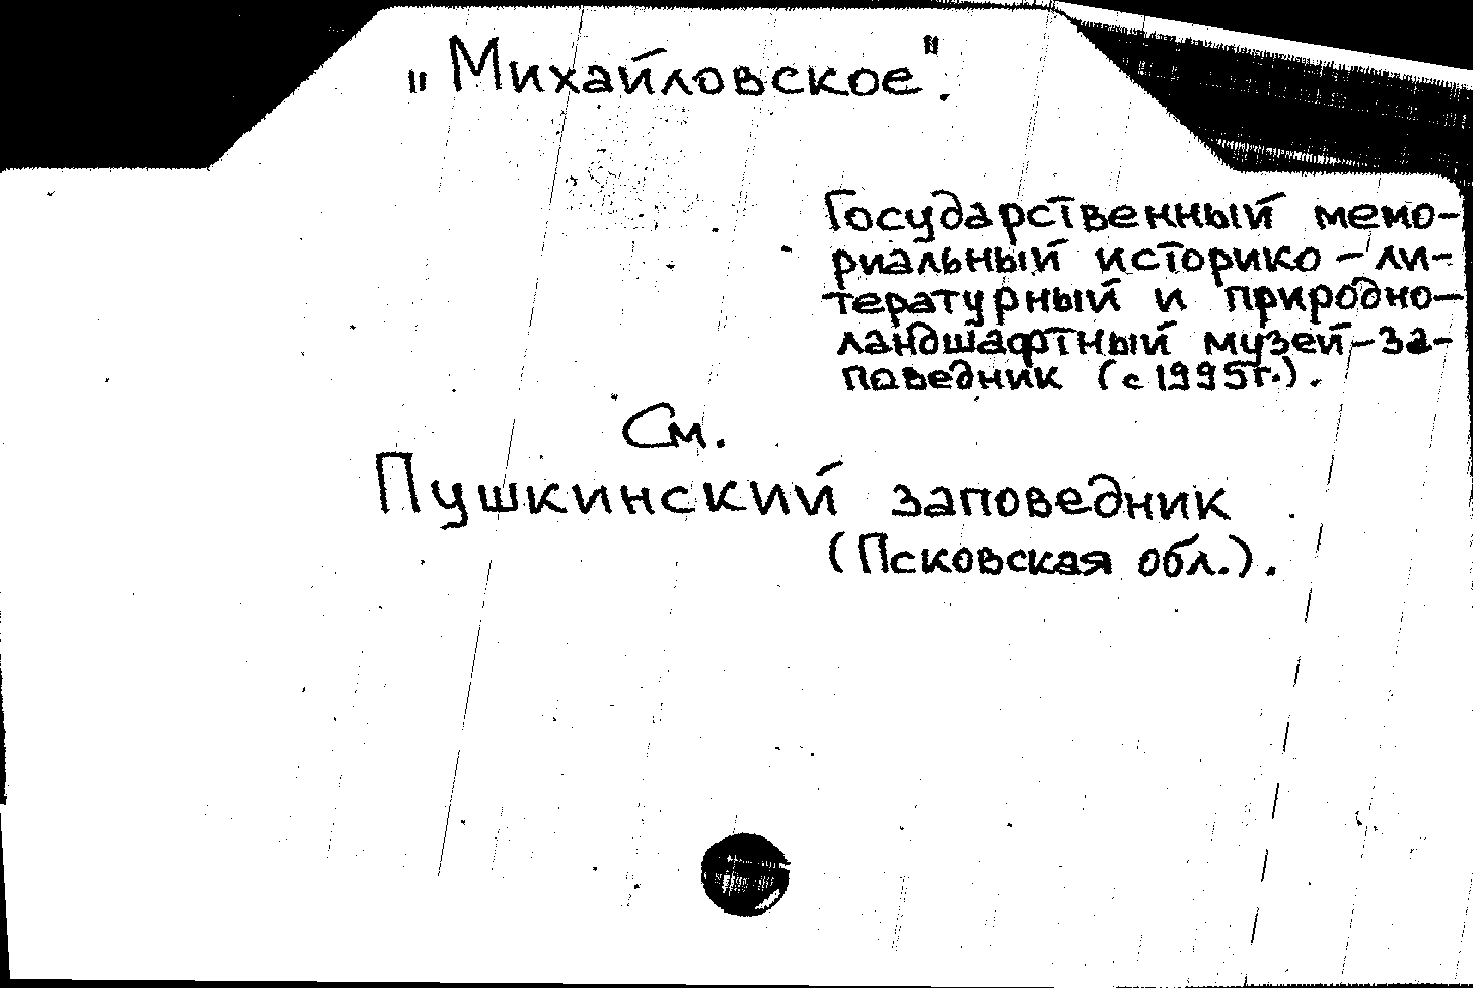 "Михайловское".
Государственный мемо-
риальный историко-ли-
тературный и природно-
ландшафтный музей-за-
поведник (с 1995г.).
См.
Пушкинский заповедник
(Псковская обл.).